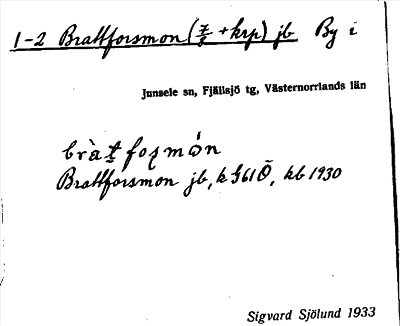 1-2 Brattforsmon (7/8 + krp) jb By i
Junsele sn, Fjällsjö tg, Västernorrlands län
bràt forsmón
Brattforsmon jb, k G61Ö, kb 1930
Sigvard Sjölund 1933